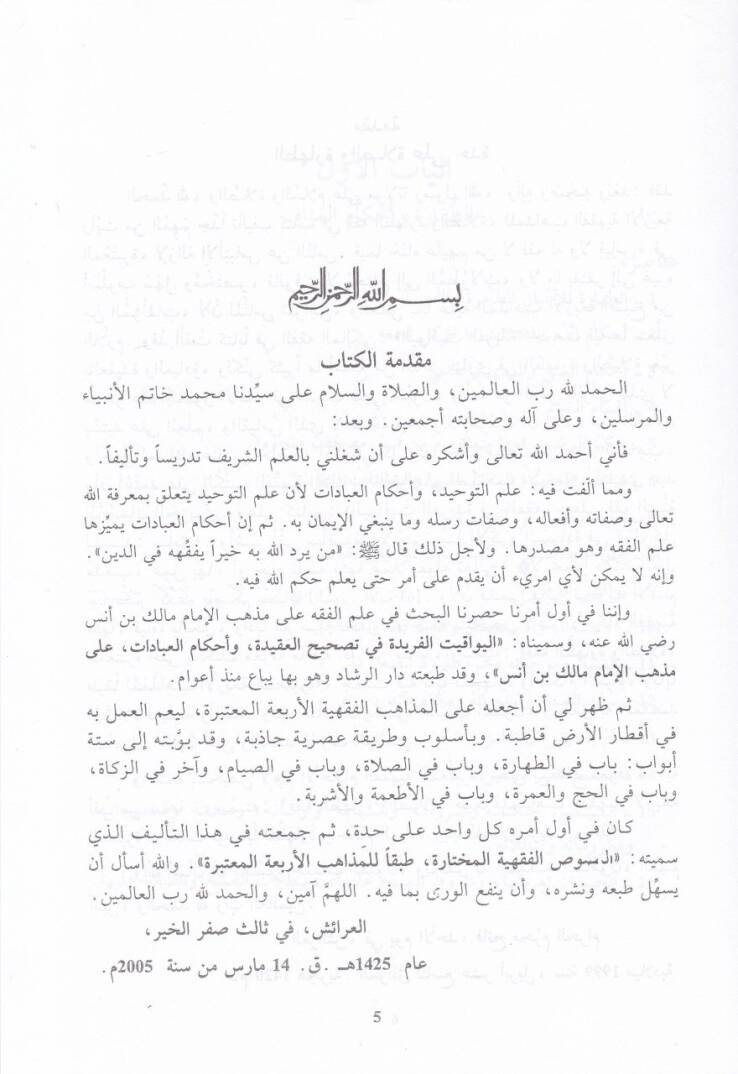 بسم الله الرحمن الرحيم
مقدمة الكتاب
الحمد لله رب العالمين، والصلاة والسلام على سيِّدنا محمد خاتم الأنبياء
والمرسلين، وعلى آله وصحابته أجمعين. وبعد:
فأني أحمد الله تعالى وأشكره على أن شغلني بالعلم الشريف تدريساً وتأليفاً.
ومما ألّفت فيه: علم التوحيد، وأحكام العبادات لأن علم التوحيد يتعلق بمعرفة الله
تعالى وصفاته وأفعاله، وصفات رسله وما ينبغي الإيمان به. ثم إن أحكام العبادات يميِّزها
علم الفقه وهو مصدرها. ولأجل ذلك قال ﷺ: «من يرد الله به خيراً يفقّهه في الدين».
وإنه لا يمكن لأي امريء أن يقدم على أمر حتى يعلم حكم الله فيه.
وإننا في أول أمرنا حصرنا البحث في علم الفقه على مذهب الإمام مالك بن أنس
رضي الله عنه، وسميناه: «اليواقيت الفريدة في تصحيح العقيدة، وأحكام العبادات، على
مذهب الإمام مالك بن أنس»، وقد طبعته دار الرشاد وهو بها يباع منذ أعوام.
ثم ظهر لي أن أجعله على المذاهب الفقهية الأربعة المعتبرة، ليعم العمل به
في أقطار الأرض قاطبة. وبأسلوب وطريقة عصرية جاذبة، وقد بوَّبته إلى ستة
أبواب: باب في الطهارة، وباب في الصلاة، وباب في الصيام، وآخر في الزكاة،
وباب في الحج والعمرة، وباب في الأطعمة والأشربة.
كان في أول أمره كل واحد على حدة، ثم جمعته في هذا التأليف الذي
سميته: الفقهية المختارة، طبقاً للمذاهب الأربعة المعتبرة». والله أسأل أن
يسهّل طبعه ونشره، وأن ينفع الورى بما فيه. اللهمَّ آمين، والحمد لله رب العالمين.
العرائش، في ثالث صفر الخير،
عام 1425هـ .ق. 14 مارس من سنة 2005م.
5